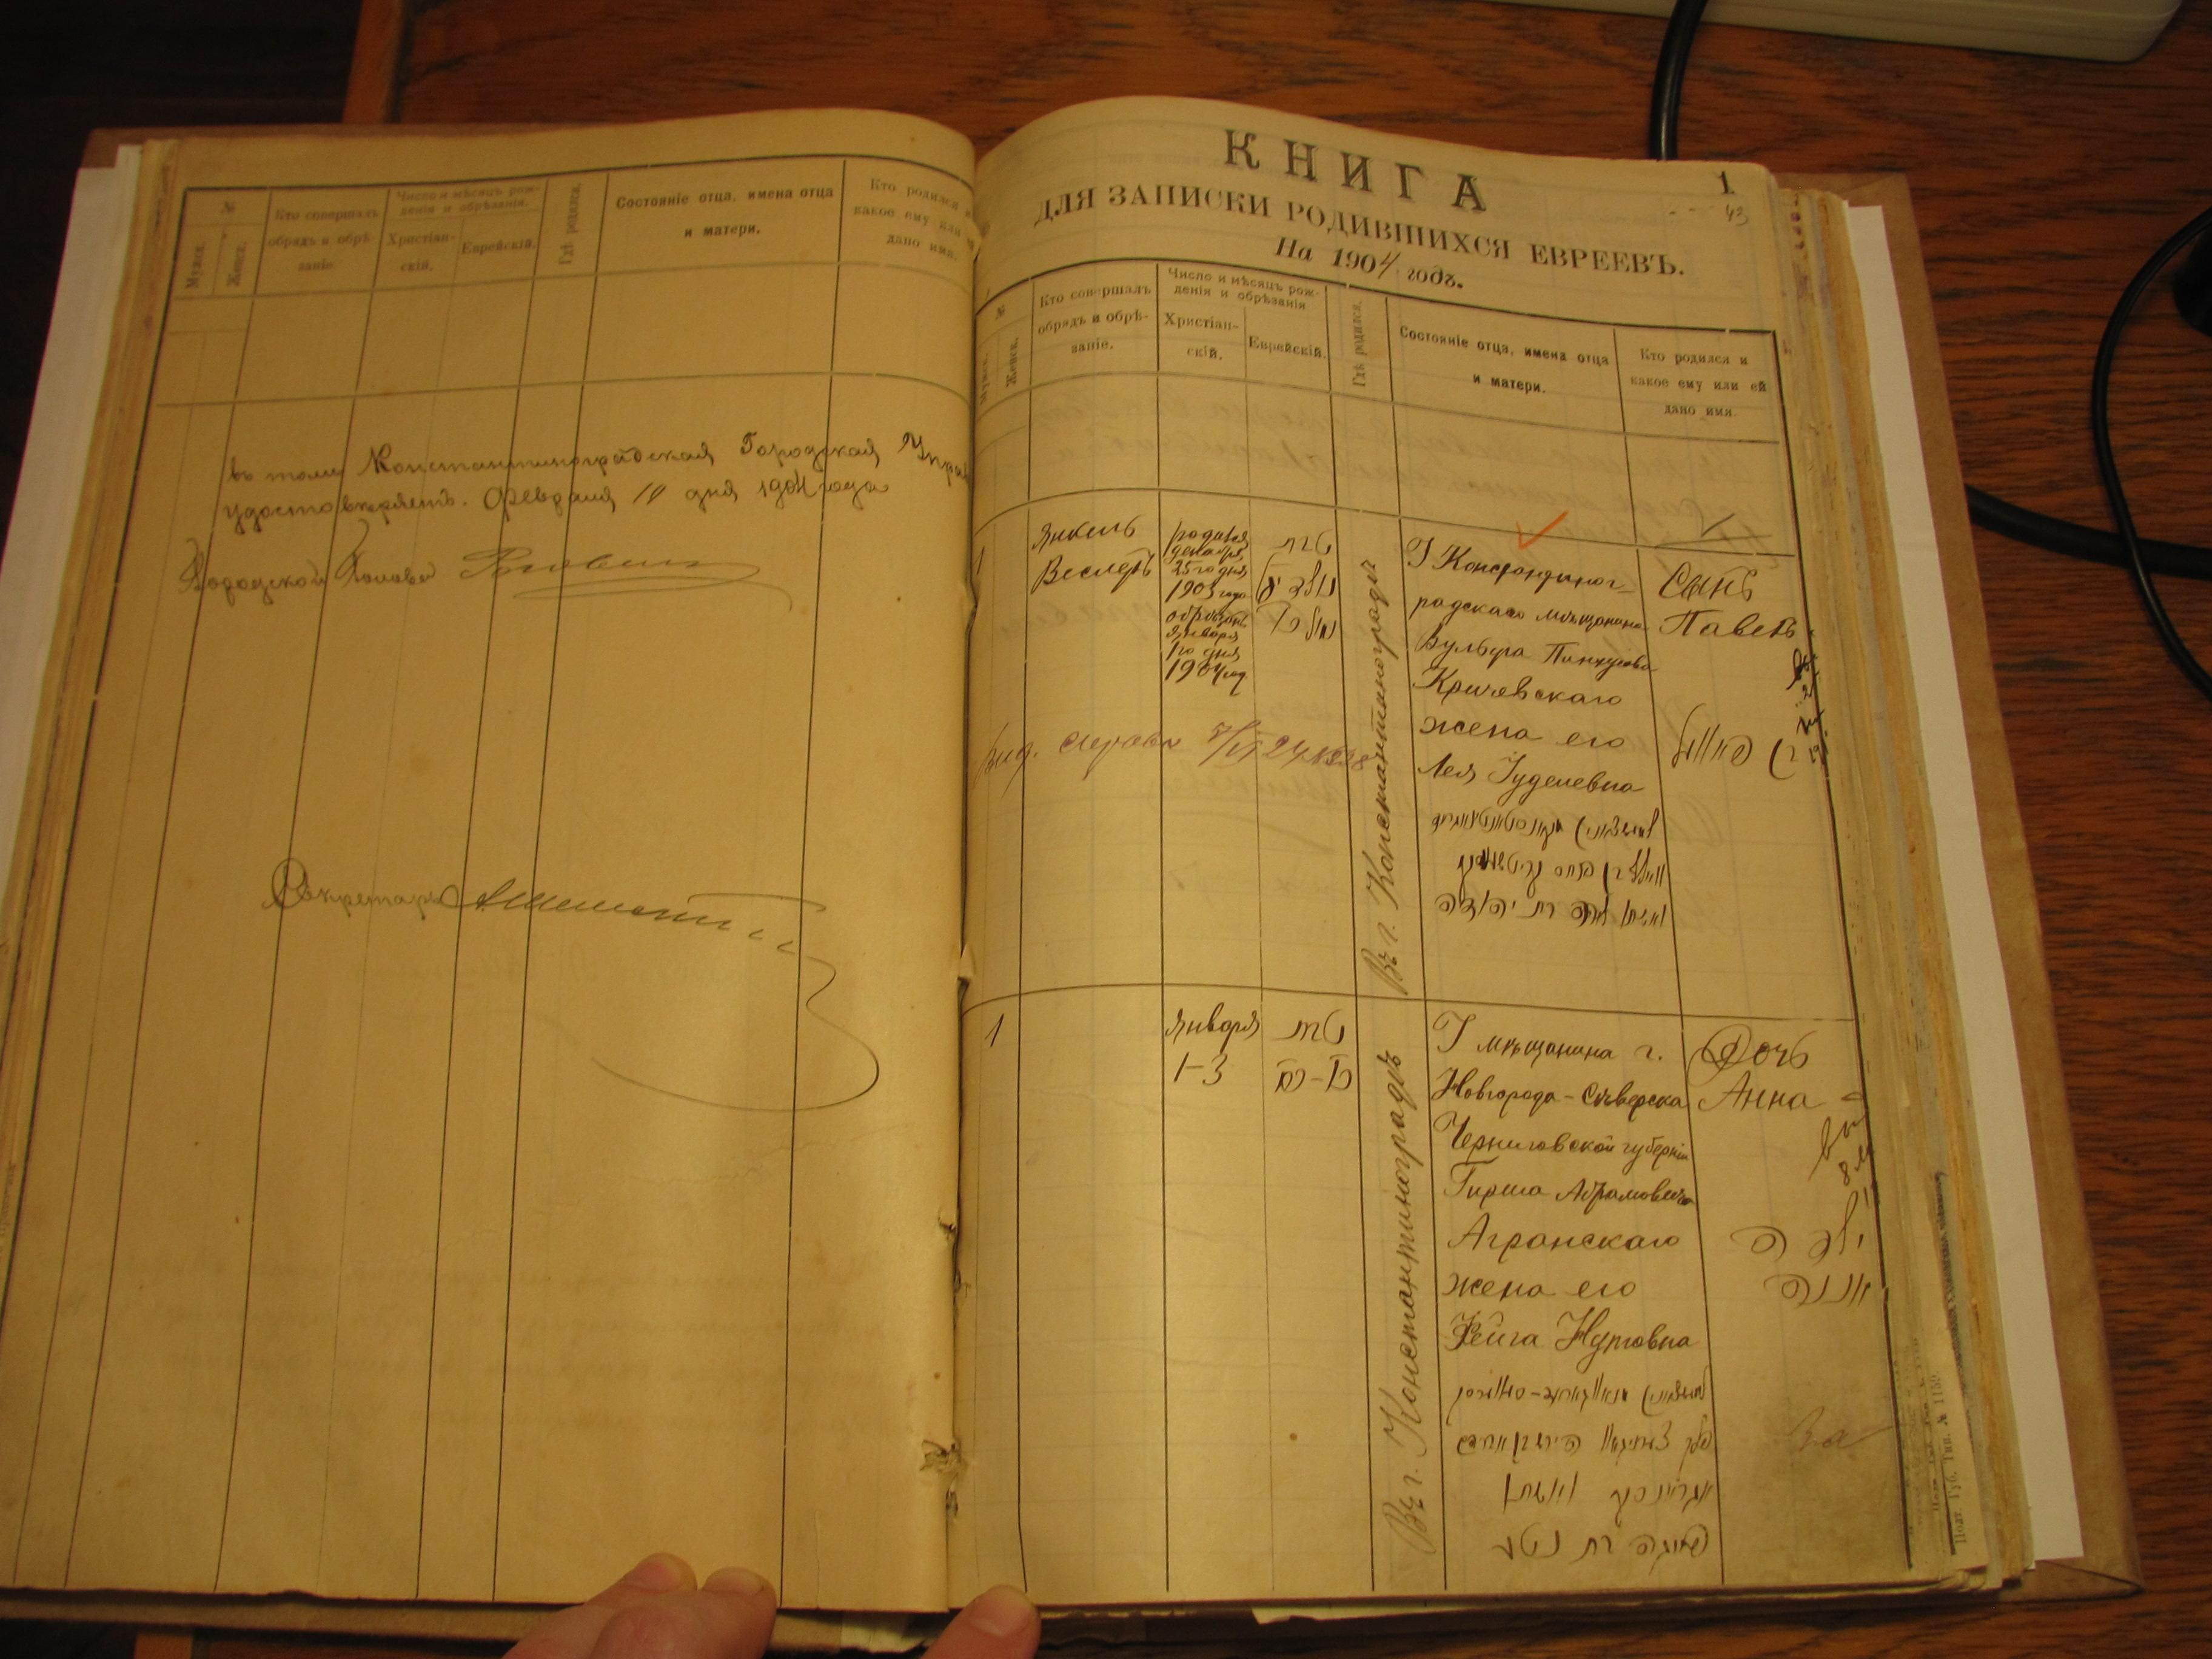 №
Мужск.
Женск.
Кто совершалъ
обрядъ и обрѣ-
заніе.
Число и мѣсяцъ рож-
денія и обрѣзанія.
Христіан-
скій.
Еврейскій.
Гдѣ родился.
Состояніе отца, имена отца
и матери.
Кто родился и
какое ему или
дано имя.
въ томъ Константиноградская Городская
удостовѣряетъ. Февраля 10 дня 1904 года
Городской Голова
Секретарь
КНИГА
1
43
ДЛЯ ЗАПИСКИ РОДИВШИХСЯ ЕВРЕЕВЪ.
На 1904 годъ.
№
Мужск.
Женск.
Кто совершалъ
обрядъ и обрѣ-
заніе.
Число и мѣсяцъ рож-
денія и обрѣзанія
Христіан-
скій.
Еврейскій.
Гдѣ родился.
Состояніе отца, имена отца
и матери.
Кто родился и
какое ему или ей
дано имя.
1
Янкель
Веслеръ
родився
декабря
25го дня
1903 года
обрѣзанъ
января
1го дня
1904 год
טבת
נולד
נמול
Въ г. Константиноградѣ
Константиног-
радскаго мѣщанина
Вульфа Пинхусова
Кричевскаго
жена его
Лея Іуделевна
וואלף בן פנחס קריטשעווסקי
ואשתו לאה בת יהודה
Сынъ
Павелъ
בן
1
января
1-3
טבת
Въ г. Константиноградѣ
мѣщанина г.
Новгорода-Сѣверска
Черниговской губерніи
Гирша Абрамовича
Агранскаго
жена его
Фейга Нутовна
אגראנסקי ואשתו
פייגה בת נטע
Дочь
Анна
ילדה
אננה
Полт. Губ. Тип. № 1159